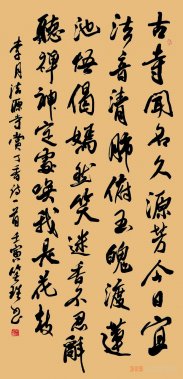 古寺闻名久源芳今日宜
法音清肺俯玉魄渡莲
池悟偈嫣然笑迷香不忍辞
听禅神定处唤我是花枝
李月法源寺赏丁香诗一首壬寅